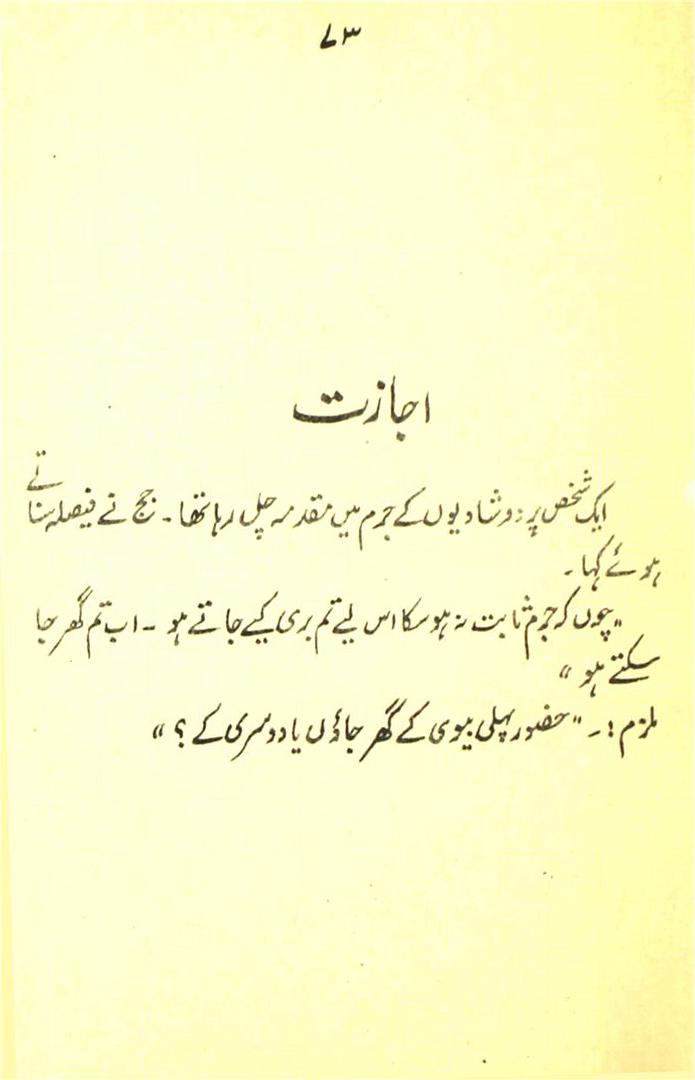 ۷۳
اجازت
ایک شخص پر دو شادیوں کے جرم میں مقدمہ چل رہا تھا۔ جج نے فیصلہ سناتے
ہوئے کہا۔
"چوں کہ جرم ثابت نہ ہو سکا اس لیے تم بری کیے جاتے ہو۔ اب تم گھر جا
سکتے ہو"
ملزم :۔ "حضور پہلی بیوی کے گھر جاؤں یا دوسری کے؟"